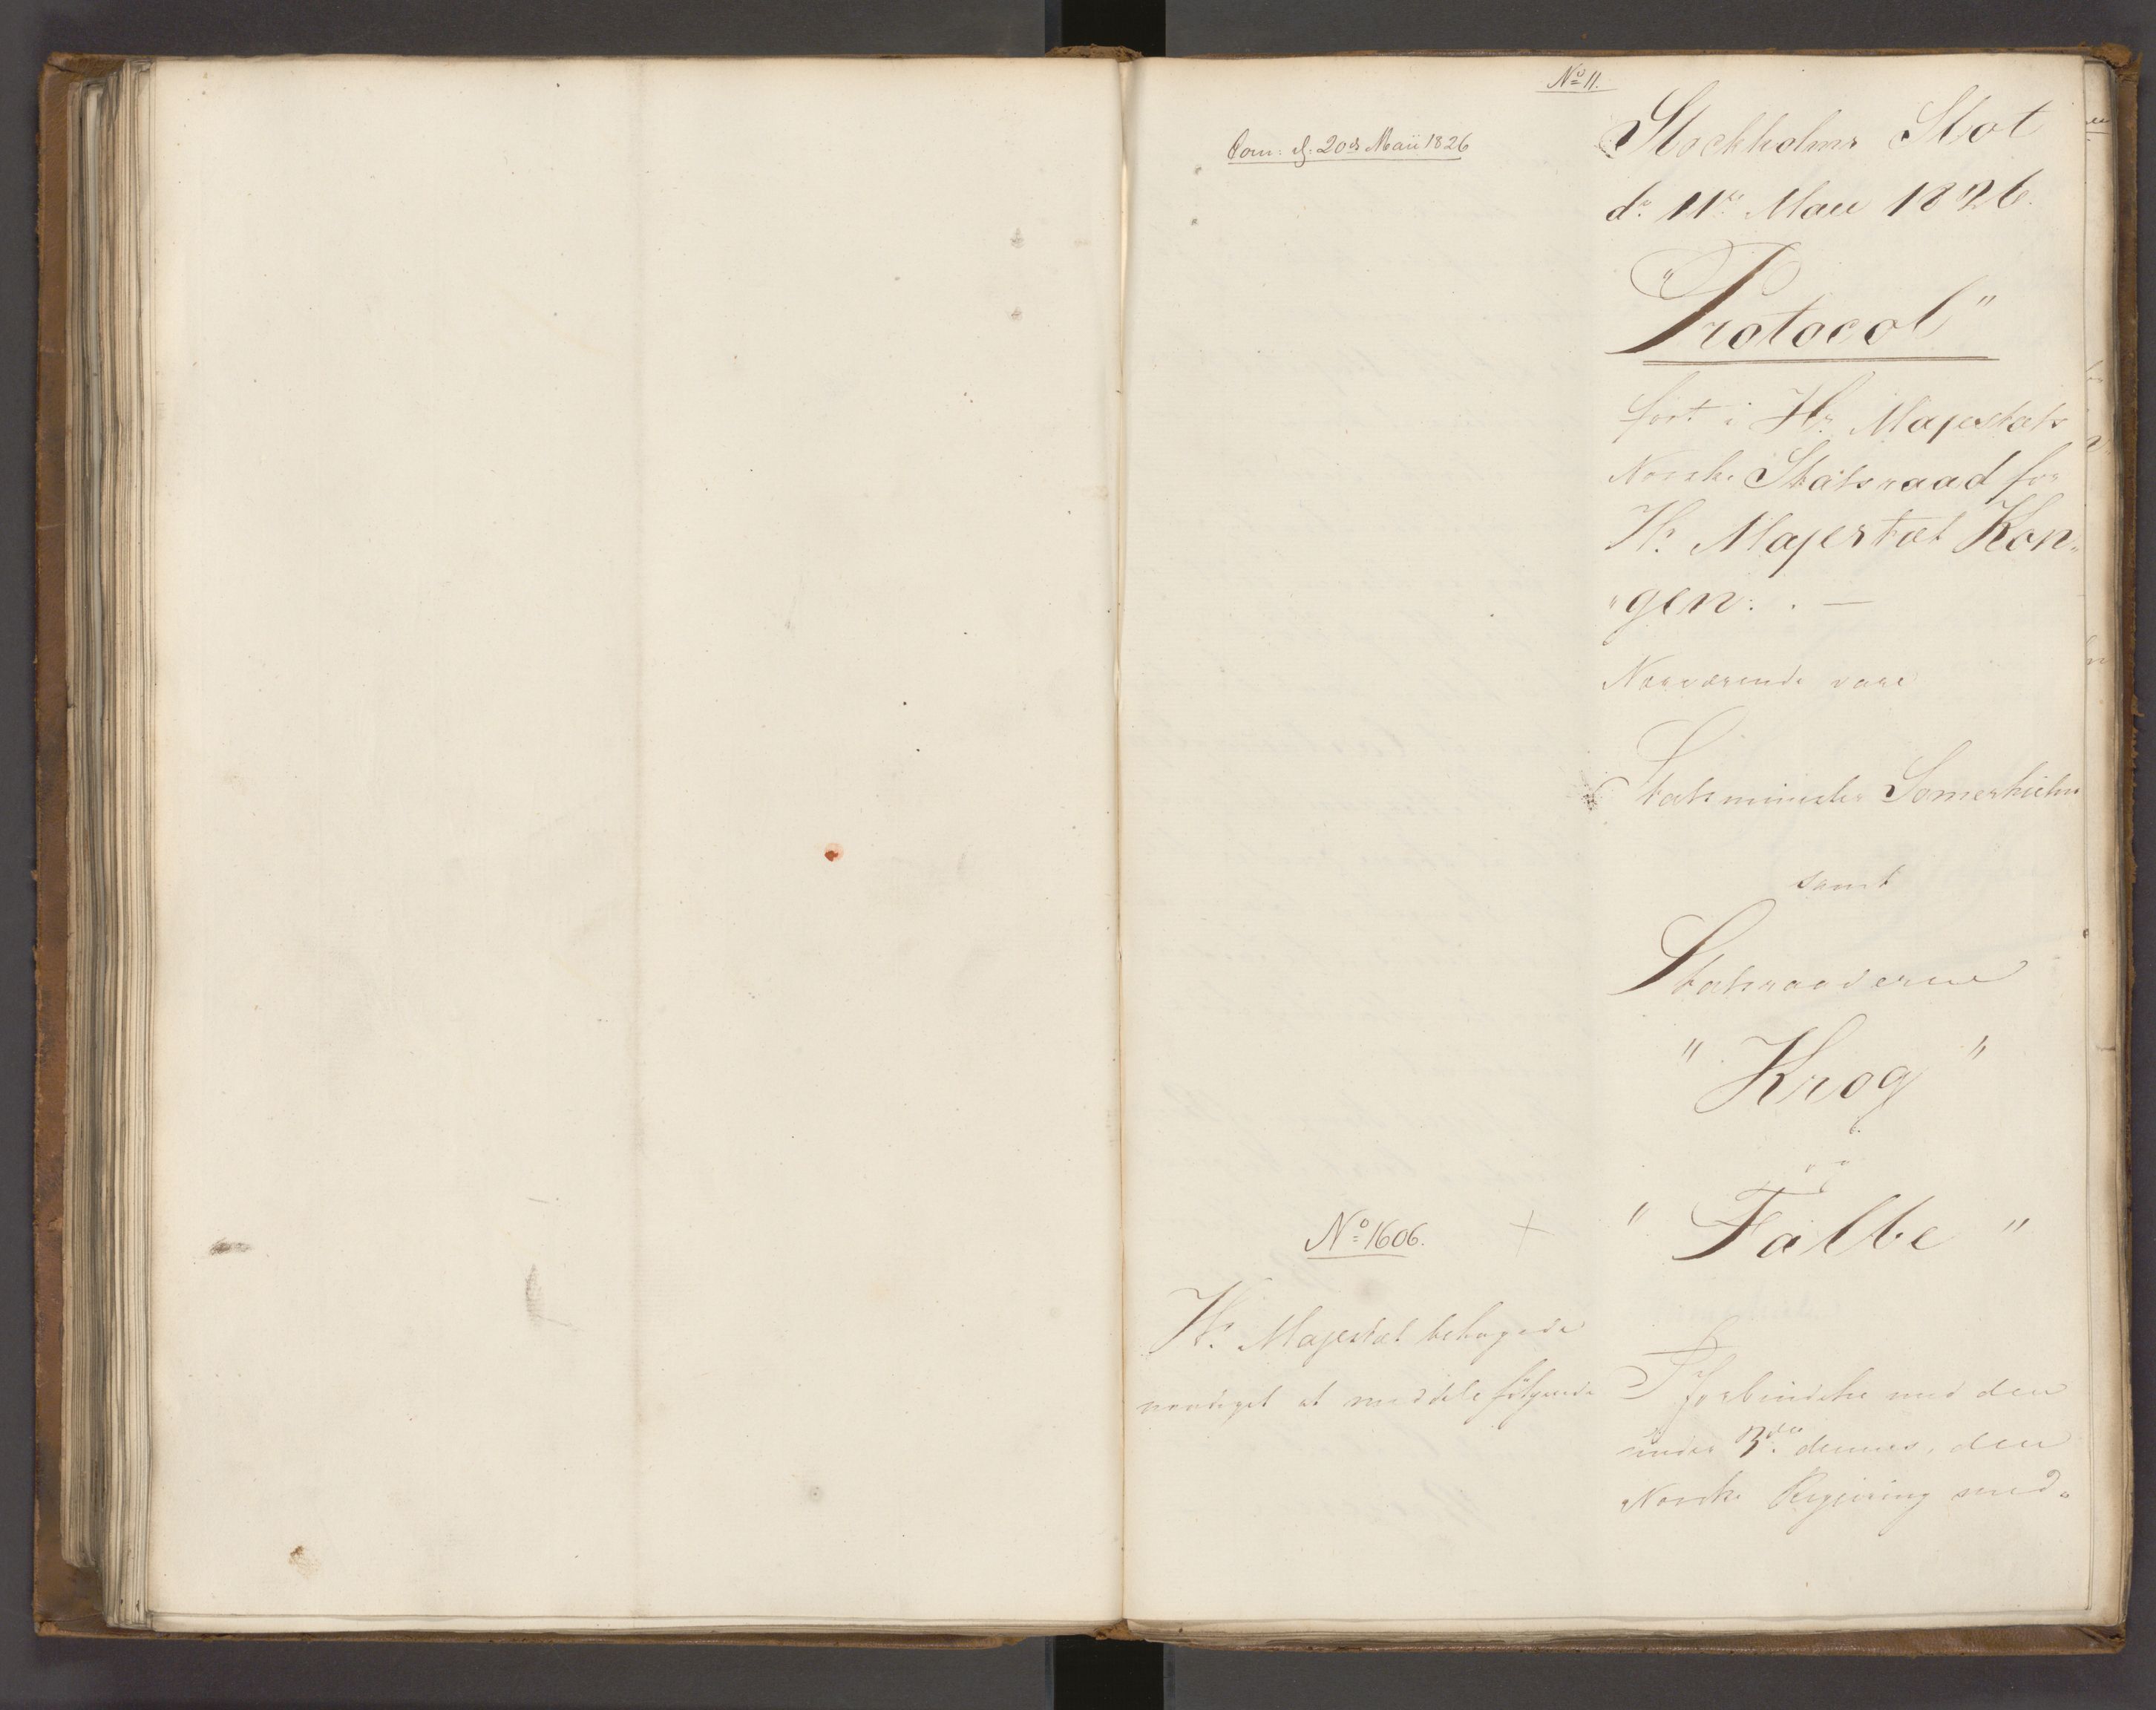 No 11.
Com: d. 20de Maii 1826
Stockholms Slot
dn 11te Maii 1826.
"Protocol"
ført i Hs Majestæts
Norske Statsraad for
Hs. Majestæt Kon"
"gen: . —
Nærværende vare
Statsminister Somerhielm
samt
Statsraaderne
"Krog"
og
"Falbe"
No 1606.
Hs. Majestæt behagede
naadigst at meddele følgende
I forbindelse med den
under 3die dennes, den
Norske Regjering med"